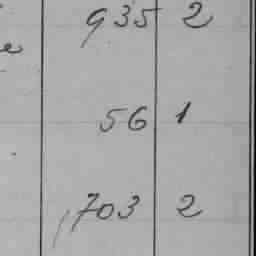 935 2
56 1
703 2